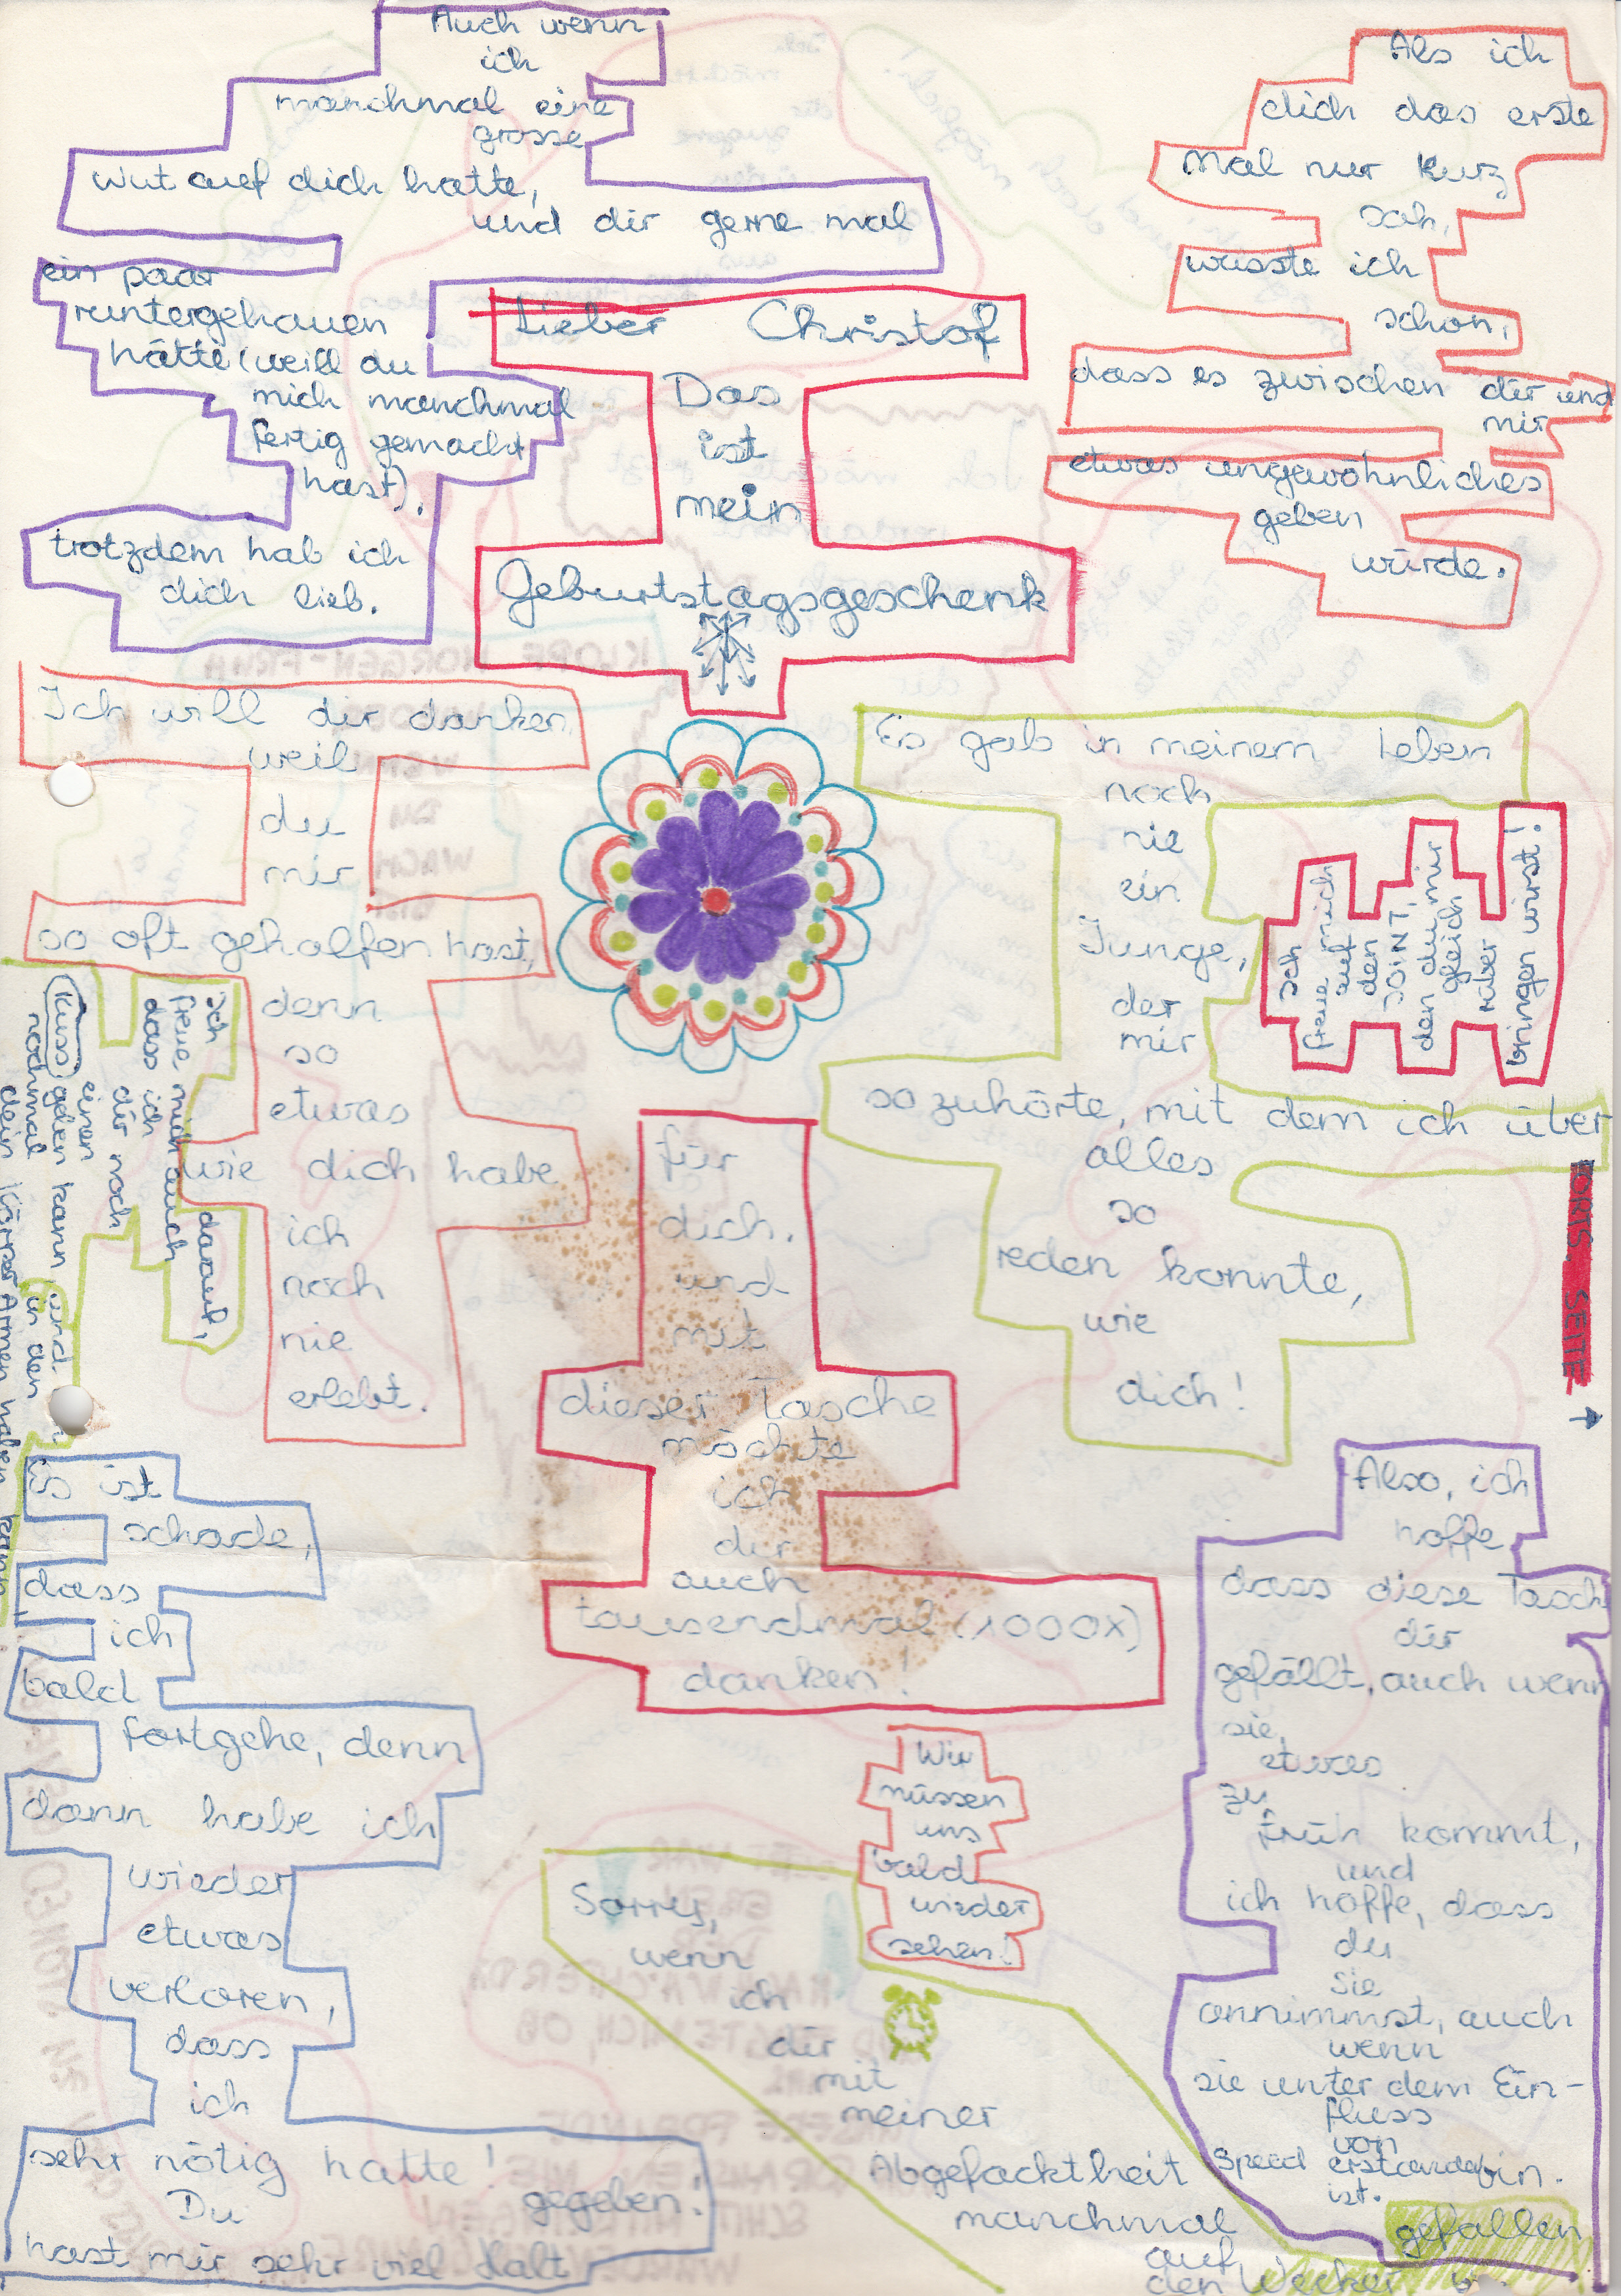 Auch wenn
ich
manchmal eine
grosse
Wut auf dich hatte,
und dir gerne mal
ein paar
runtergehauen
hätte (weill du
mich manchmal
fertig gemacht
hast),
trotzdem hab ich
dich lieb.
Lieber Christof
Das
ist
mein
Geburtstagsgeschenk
Als ich
dich das erste
Mal nur kurz
sah,
wusste ich
schon,
dass es zwischen dir und
mir
etwas ungewöhnliches
geben
würde.
Ich will dir danken,
weil
du
mir
so oft geholfen hast,
denn
so
etwas
wie dich habe
ich
noch
nie
erlebt.
Es gab in meinem Leben
noch
nie
ein
Junge,
der
mir
so zuhörte, mit dem ich über
alles
so
reden konnte,
wie
dich!
Ich
freue mich
auf
den
JOINT,
den du mir
gleich
rüber
bringen wirst!
FORTS. SEITE
Ich
freue mich auch darauf,
dass ich
dir noch
einen
Kuss geben kann, und
nochmal in den
dein Körper Armen haben kann
für
dich.
und
mit
dieser Tasche
möchte
ich
dir
auch
tausendmal (1000X)
danken!
Es ist
schade,
dass
ich
bald
fortgehe, denn
dann habe ich
wieder
etwas
verloren,
dass
ich
sehr nötig hatte!
Du
hast mir sehr viel Halt
gegeben!
Wir
müssen
uns
bald
wieder
sehen!
Sorry,
wenn
ich
dir
mit
meiner
Abgefacktheit
manchmal
auf
den Wecker
gefallen
bin.
Also, ich
hoffe
dass diese Tasch
dir
gefällt, auch wenn
sie,
etwas
zu,
früh kommt,
und
ich hoffe, dass
du
sie
annimmst, auch
wenn
sie unter dem Ein-
fluss
von
Speed erstanden
ist.